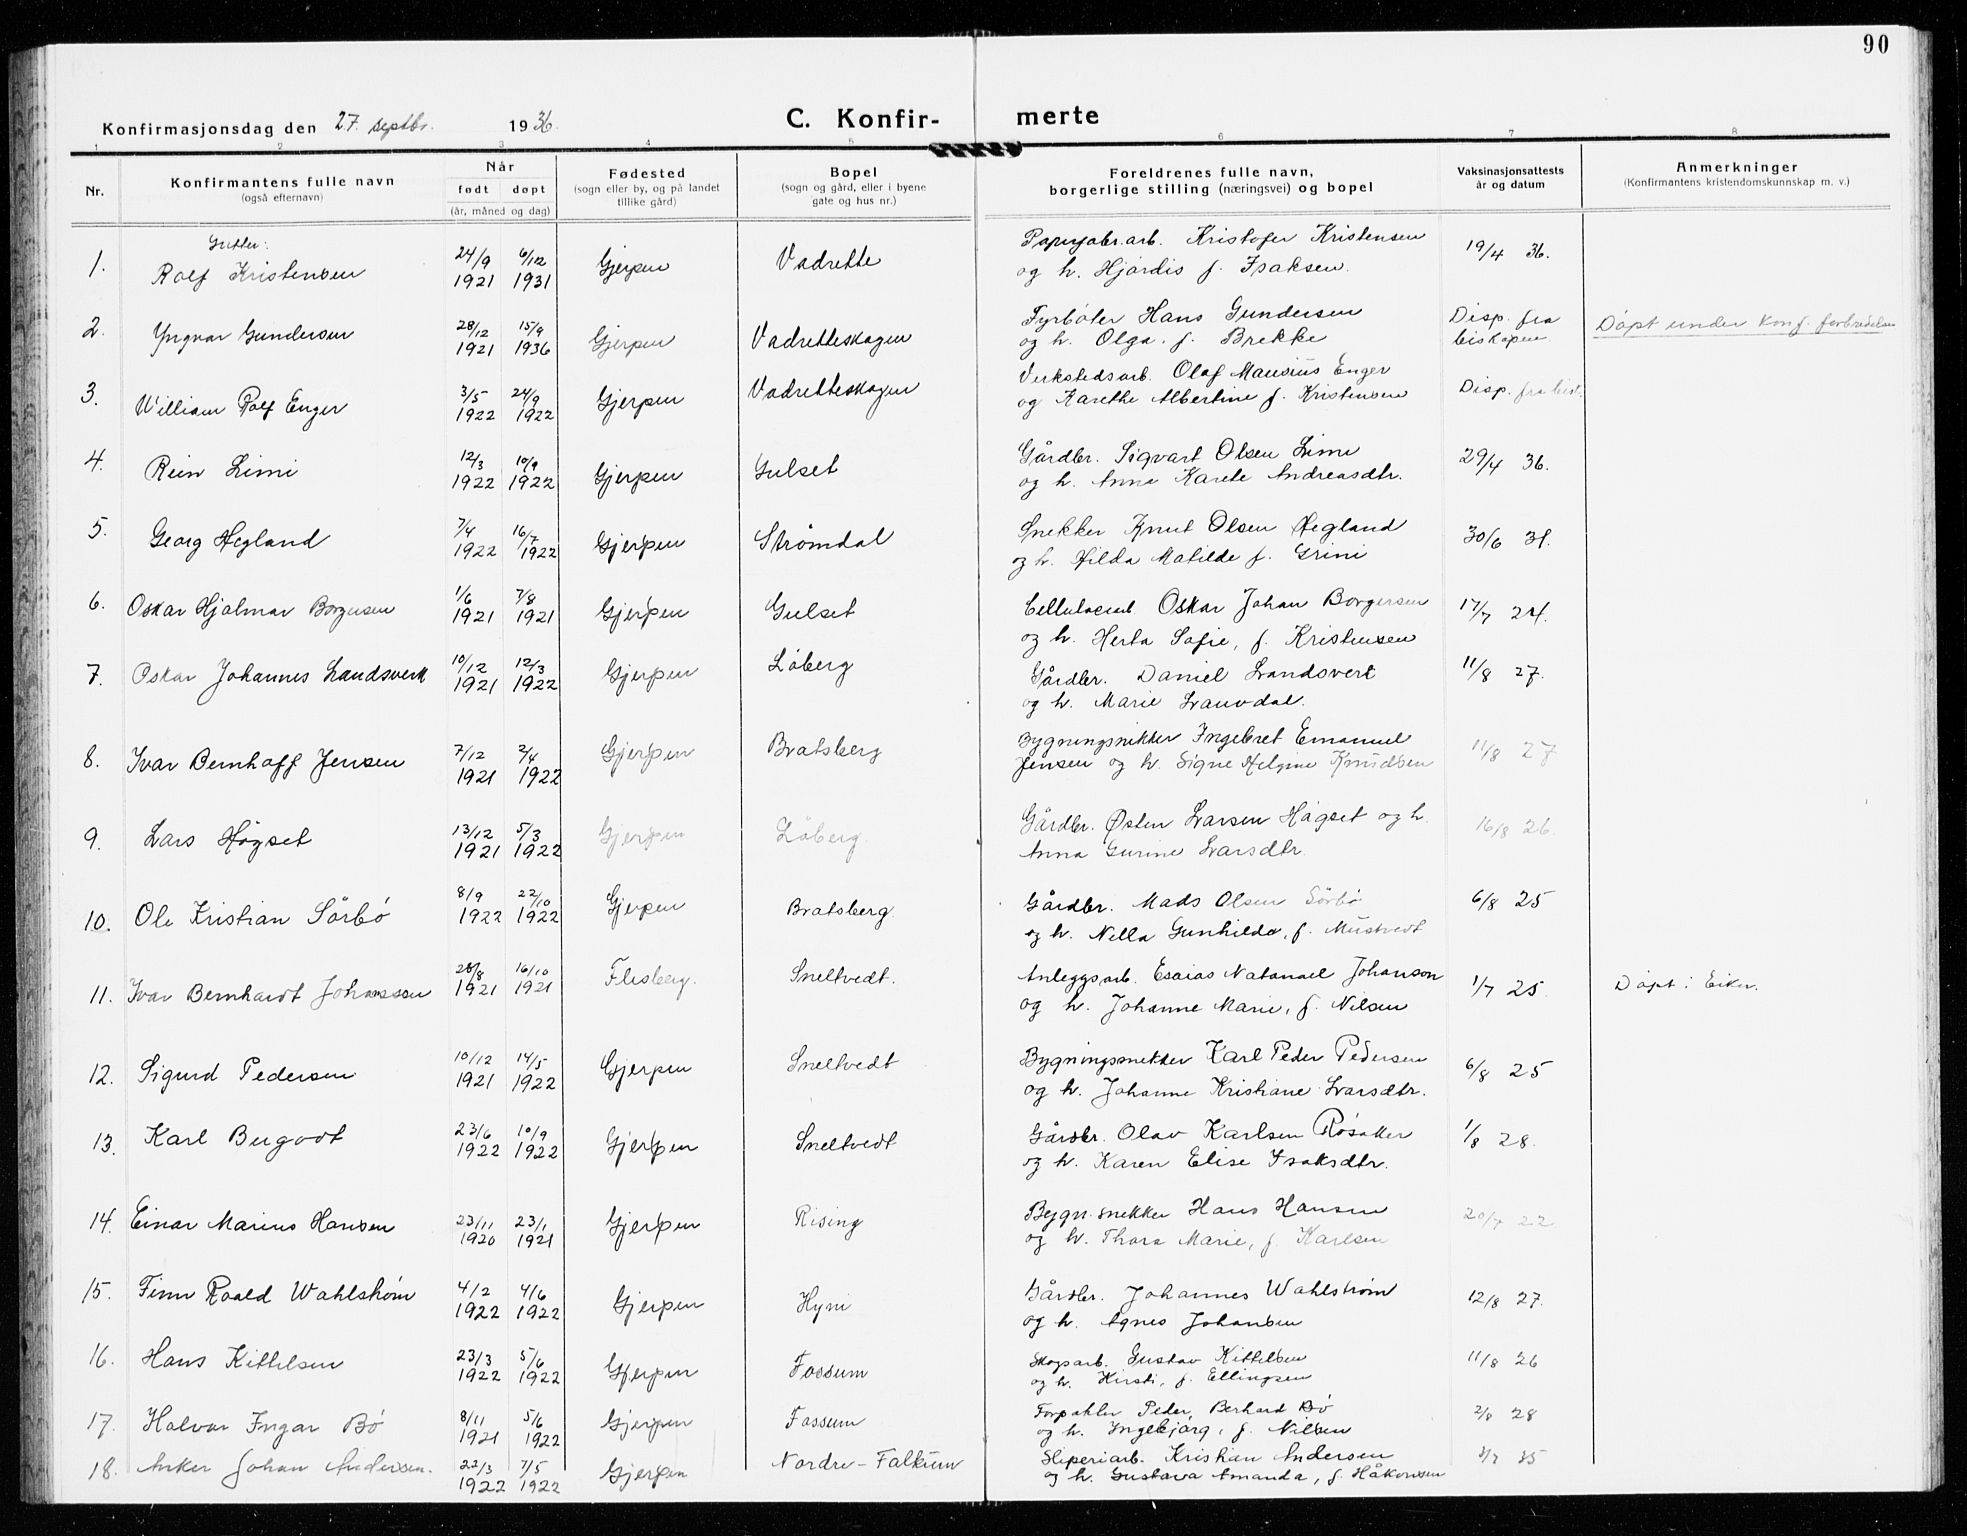 90
Konfirmasjonsdag den 27. septbr. 1936.
C. Konfirmerte
1 2 3 4 5 6 7 8
Nr.
Konfirmantens fulle navn
(også efternavn)
Når
født døpt
(år, måned og dag)
Fødested
(sogn eller by, og på landet
tillike gård)
Bopel
(sogn og gård, eller i byene
gate og hus nr.)
Foreldrenes fulle navn,
borgerlige stilling (næringsvei) og bopel
Vaksinasjonsattests
år og datum
Anmerkninger
(Konfirmantens kristendomskunnskap m. v.)
Gutter:
1. Rolf Kristensen 24/9 1921 6/12 1931 Gjerpen Vadrette
Papirfabr.arb. Kristofer Kristensen
og h. Hjördis f. Isaksen. 19/4 36.
2. Yngvar Gundersen 28/12 1921 15/9 1936 Gjerpen Vadretteskogen
Fyrbøter Hans Gundersen
og h. Olga. f. Brekke
Disp. fra
biskopen.
Döpt under konf. forberedelsen
3. William Rolf Enger 3/5 1922 24/9 1922 Gjerpen Vadretteskogen
Verkstedsarb. Olaf Mausius Enger
og Karethe Albertine f. Kristensen Disp. fra bisk.
4. Rein Limi 12/3 1922 10/9 1922 Gjerpen Gulset
Gårdbr. Sigvart Olsen Limi
og h. Anna Karete Andreasdtr. 29/4 36.
5. Georg Hegland 7/4 1922 16/7 1922 Gjerpen Strømdal
Snekker Knut Olsen Hegland
og h. Hilda Matilde f. Grini 30/6 31.
6. Oskar Hjalmar Borgersen 1/6 1921 7/8 1921 Gjerpen Gulset
Cellulosearb. Oskar Johan Borgersen
og h. Herta Sofie, f. Kristensen 17/7 24.
7. Oskar Johannes Landsverk 10/12 1921 12/3 1922 Gjerpen Löberg
Gårdbr. Daniel Landsverk
og h. Marie Lauvdal. 11/8 27.
8. Ivar Bernhoff Jensen 7/12 1921 2/4 1922 Gjerpen Bratsberg
Bygningsnekker Ingebret Emanuel
Jensen og h. Signe Helgine Knudsen 11/8 27
9. Lars Högset 13/12 1921 5/3 1922 Gjerpen Löberg.
Gårdbr. Østen Larsen Högset og h.
Anna Gurine Larsdtr. 16/8 26.
10. Ole Kristian Sörbö 8/9 1922 22/10 1922 Gjerpen Bratsberg.
Gårdbr. Mads Olsen Sörbö
og h. Nella Gunhilda, f. Mustvedt 6/8 25
11. Ivar Bernhardt Johansson 28/8 1921 16/10 1921 Flesberg. Sneltvedt.
Anleggsarb. Esaias Natanael Johanson
og h. Johanne Marie, f. Nilsen 1/7 25. Döpt i Eiker.
12. Sigurd Pedersen 10/12 1921 14/5 1922 Gjerpen Sneltvedt
Bygningsnekker Karl Peder Pedersen
og h. Johanne Kristiane Larsdtr. 6/8 25
13. Karl Bugodt 23/6 1922 10/9 1922 Gjerpen Sneltvedt
Gårdbr. Olav Karlsen Røsaker
og h. Karen Elise Isaksdtr. 1/8 28.
14. Einar Marius Hansen 23/11 1920 23/1 1921 Gjerpen Rising
Bygn.snekker Hans Hansen
og h. Thora Marie, f. Karlsen 20/7 22
15. Finn Roald Wahlstrøm 4/2 1922 4/6 1922 Gjerpen Hyni
Gårdbr. Johannes Wahlstrøm
og h. Agnes Johansen 12/8 27.
16. Hans Kittelsen 23/3 1922 5/6 1922 Gjerpen Fossum
Skogsarb. Gustav Kittelsen
og h. Kirsti, f. Ellingsen 11/8 26
17. Halvor Ingar Bö 8/11 1921 5/6 1922 Gjerpen Fossum
Forpakter Peder Berhard Bö
og h. Ingebjørg, f. Nilsen 2/8 28
18. Anker Johan Andersen. 22/3 1922 7/5 1922 Gjerpen Nordre-Falkum
Sliperiarb. Kristian Andersen
og h. Gustava Amanda, f. Håkonsen 3/7 35